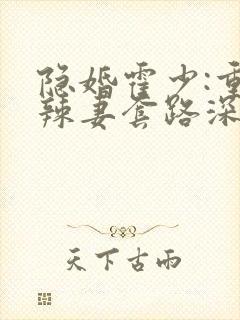 隐婚霍少:重
辣妻套路深
天下古雨